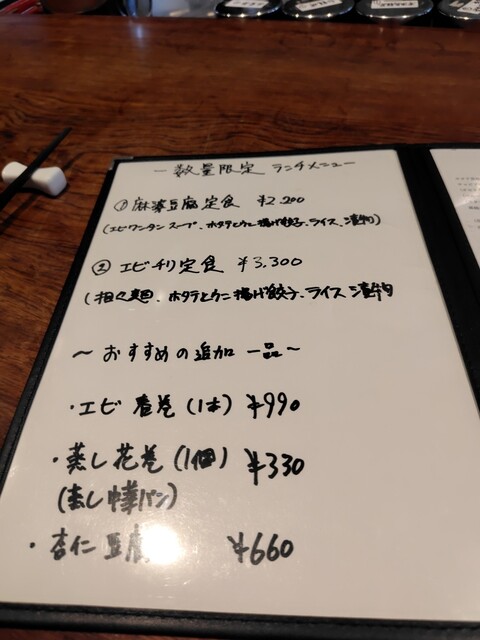 ー数量限定 ランチメニューー
① 麻婆豆腐定食 ¥2.200
(エビワンタンスープ、ホタテとウニ揚げ餃子、ライス、漬物)
② エビチリ定食 ¥3,300
(担々麺、ホタテとウニ揚げ餃子、ライス 漬物
〜おすすめの追加 一品〜
・エビ 春巻(1本) ¥990
・蒸し花巻(1個) ¥330
(蒸し中華パン)
・杏仁豆腐 ¥660